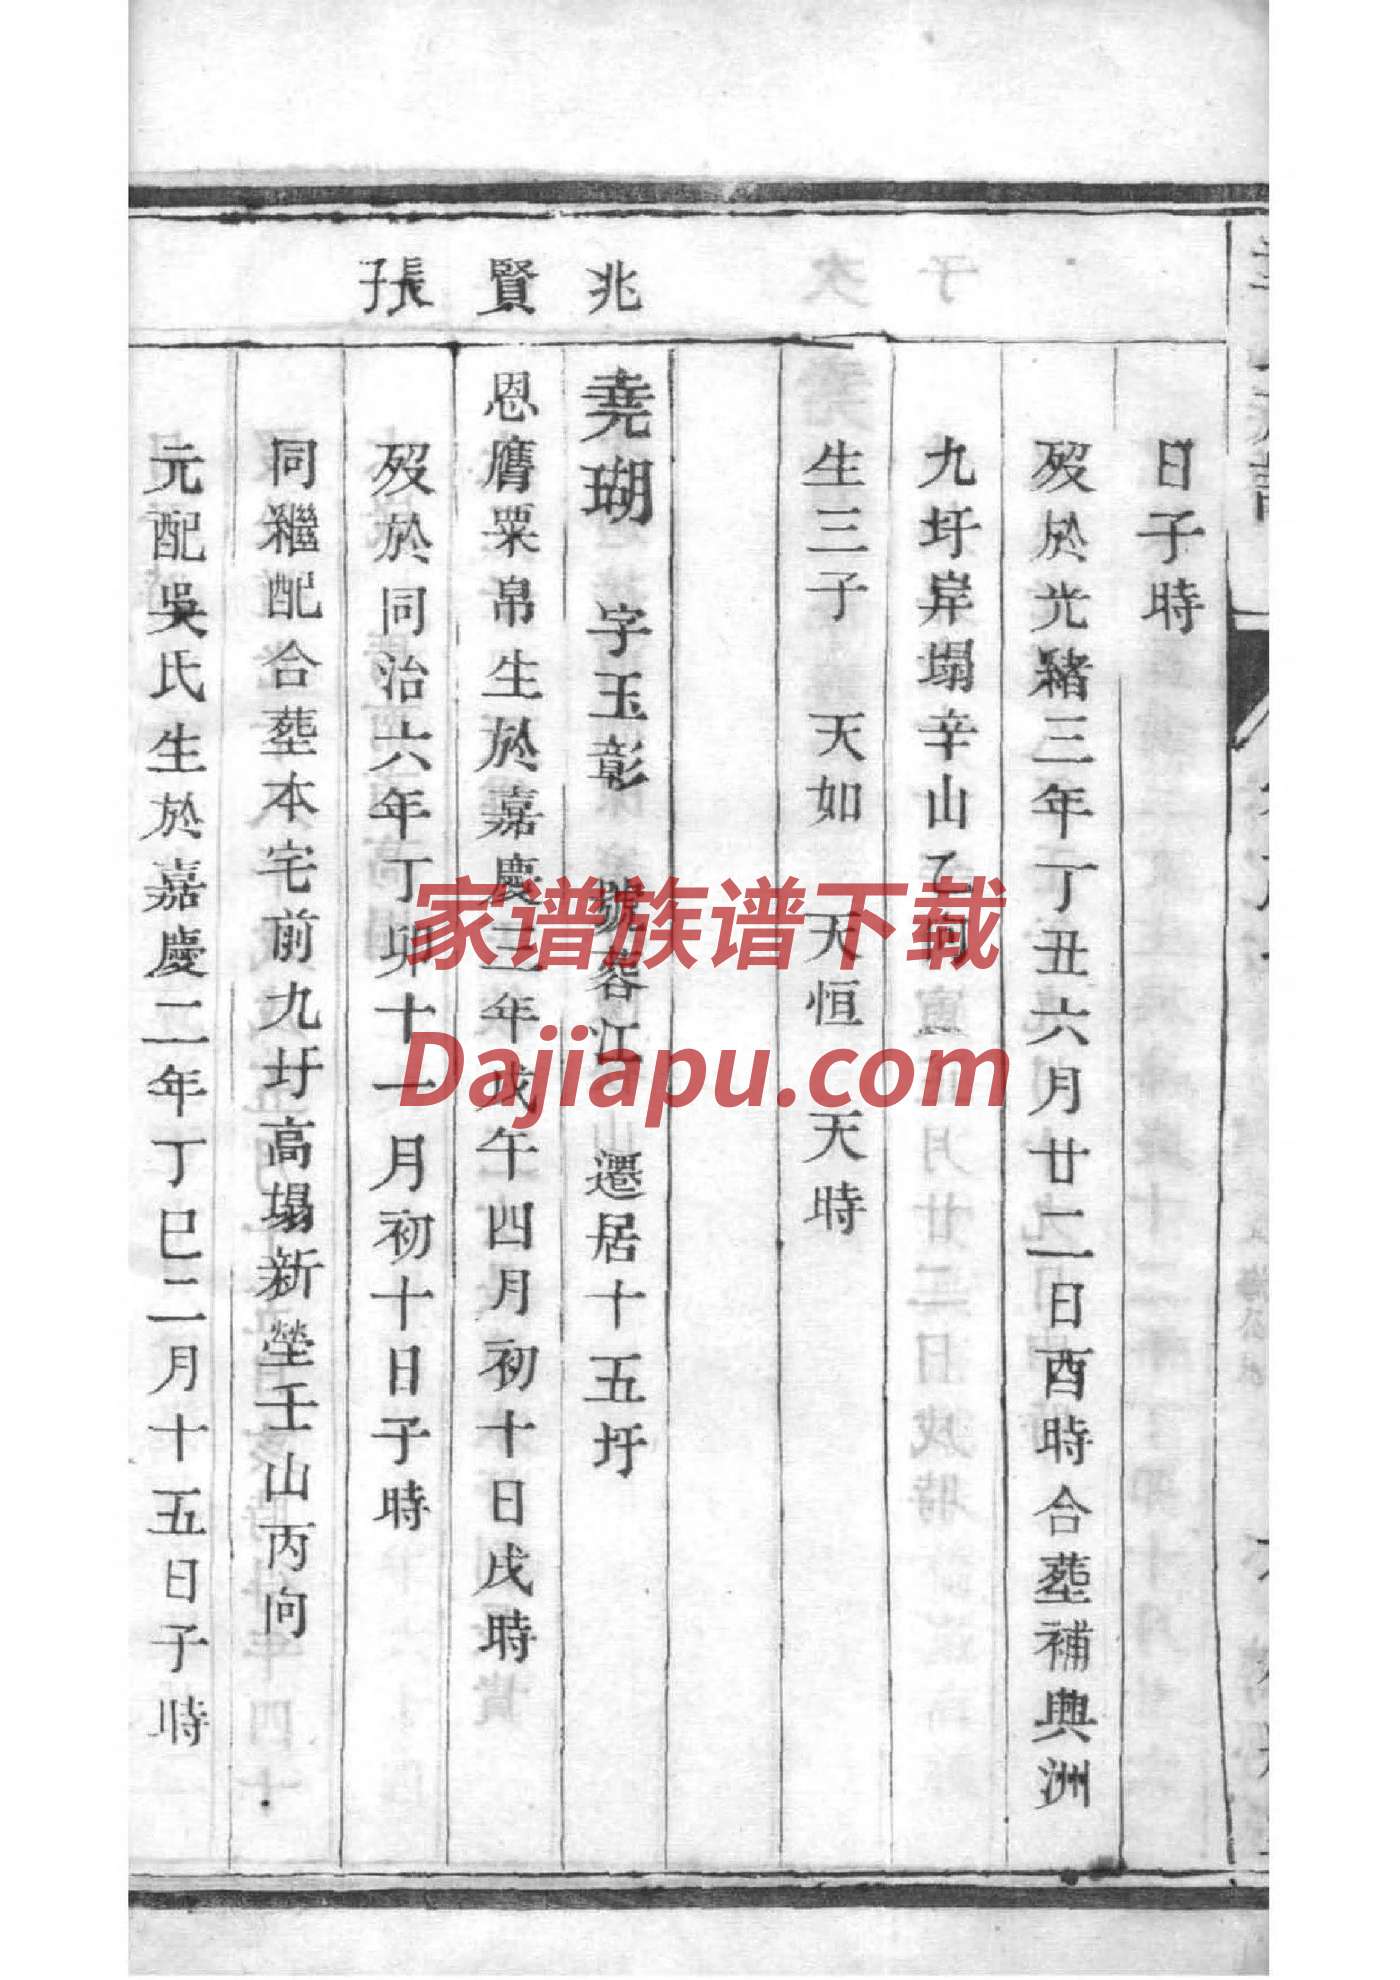 日子時
歿於光緒三年丁丑六月廿二日酉時合塟補興洲
九圩岸塌辛山乙向
生三子 天如 天恒 天時
兆賢長子
堯瑚 字玉彰 號蓉江 遷居十五圩
恩膺粟帛生於嘉慶三年戊午四月初十日戌時
歿於同治六年丁卯十一月初十日子時
同繼配合塟本宅前九圩高塌新塋壬山丙向
元配吳氏生於嘉慶二年丁巳二月十五日子時
家谱族谱下载
Dajiapu.com